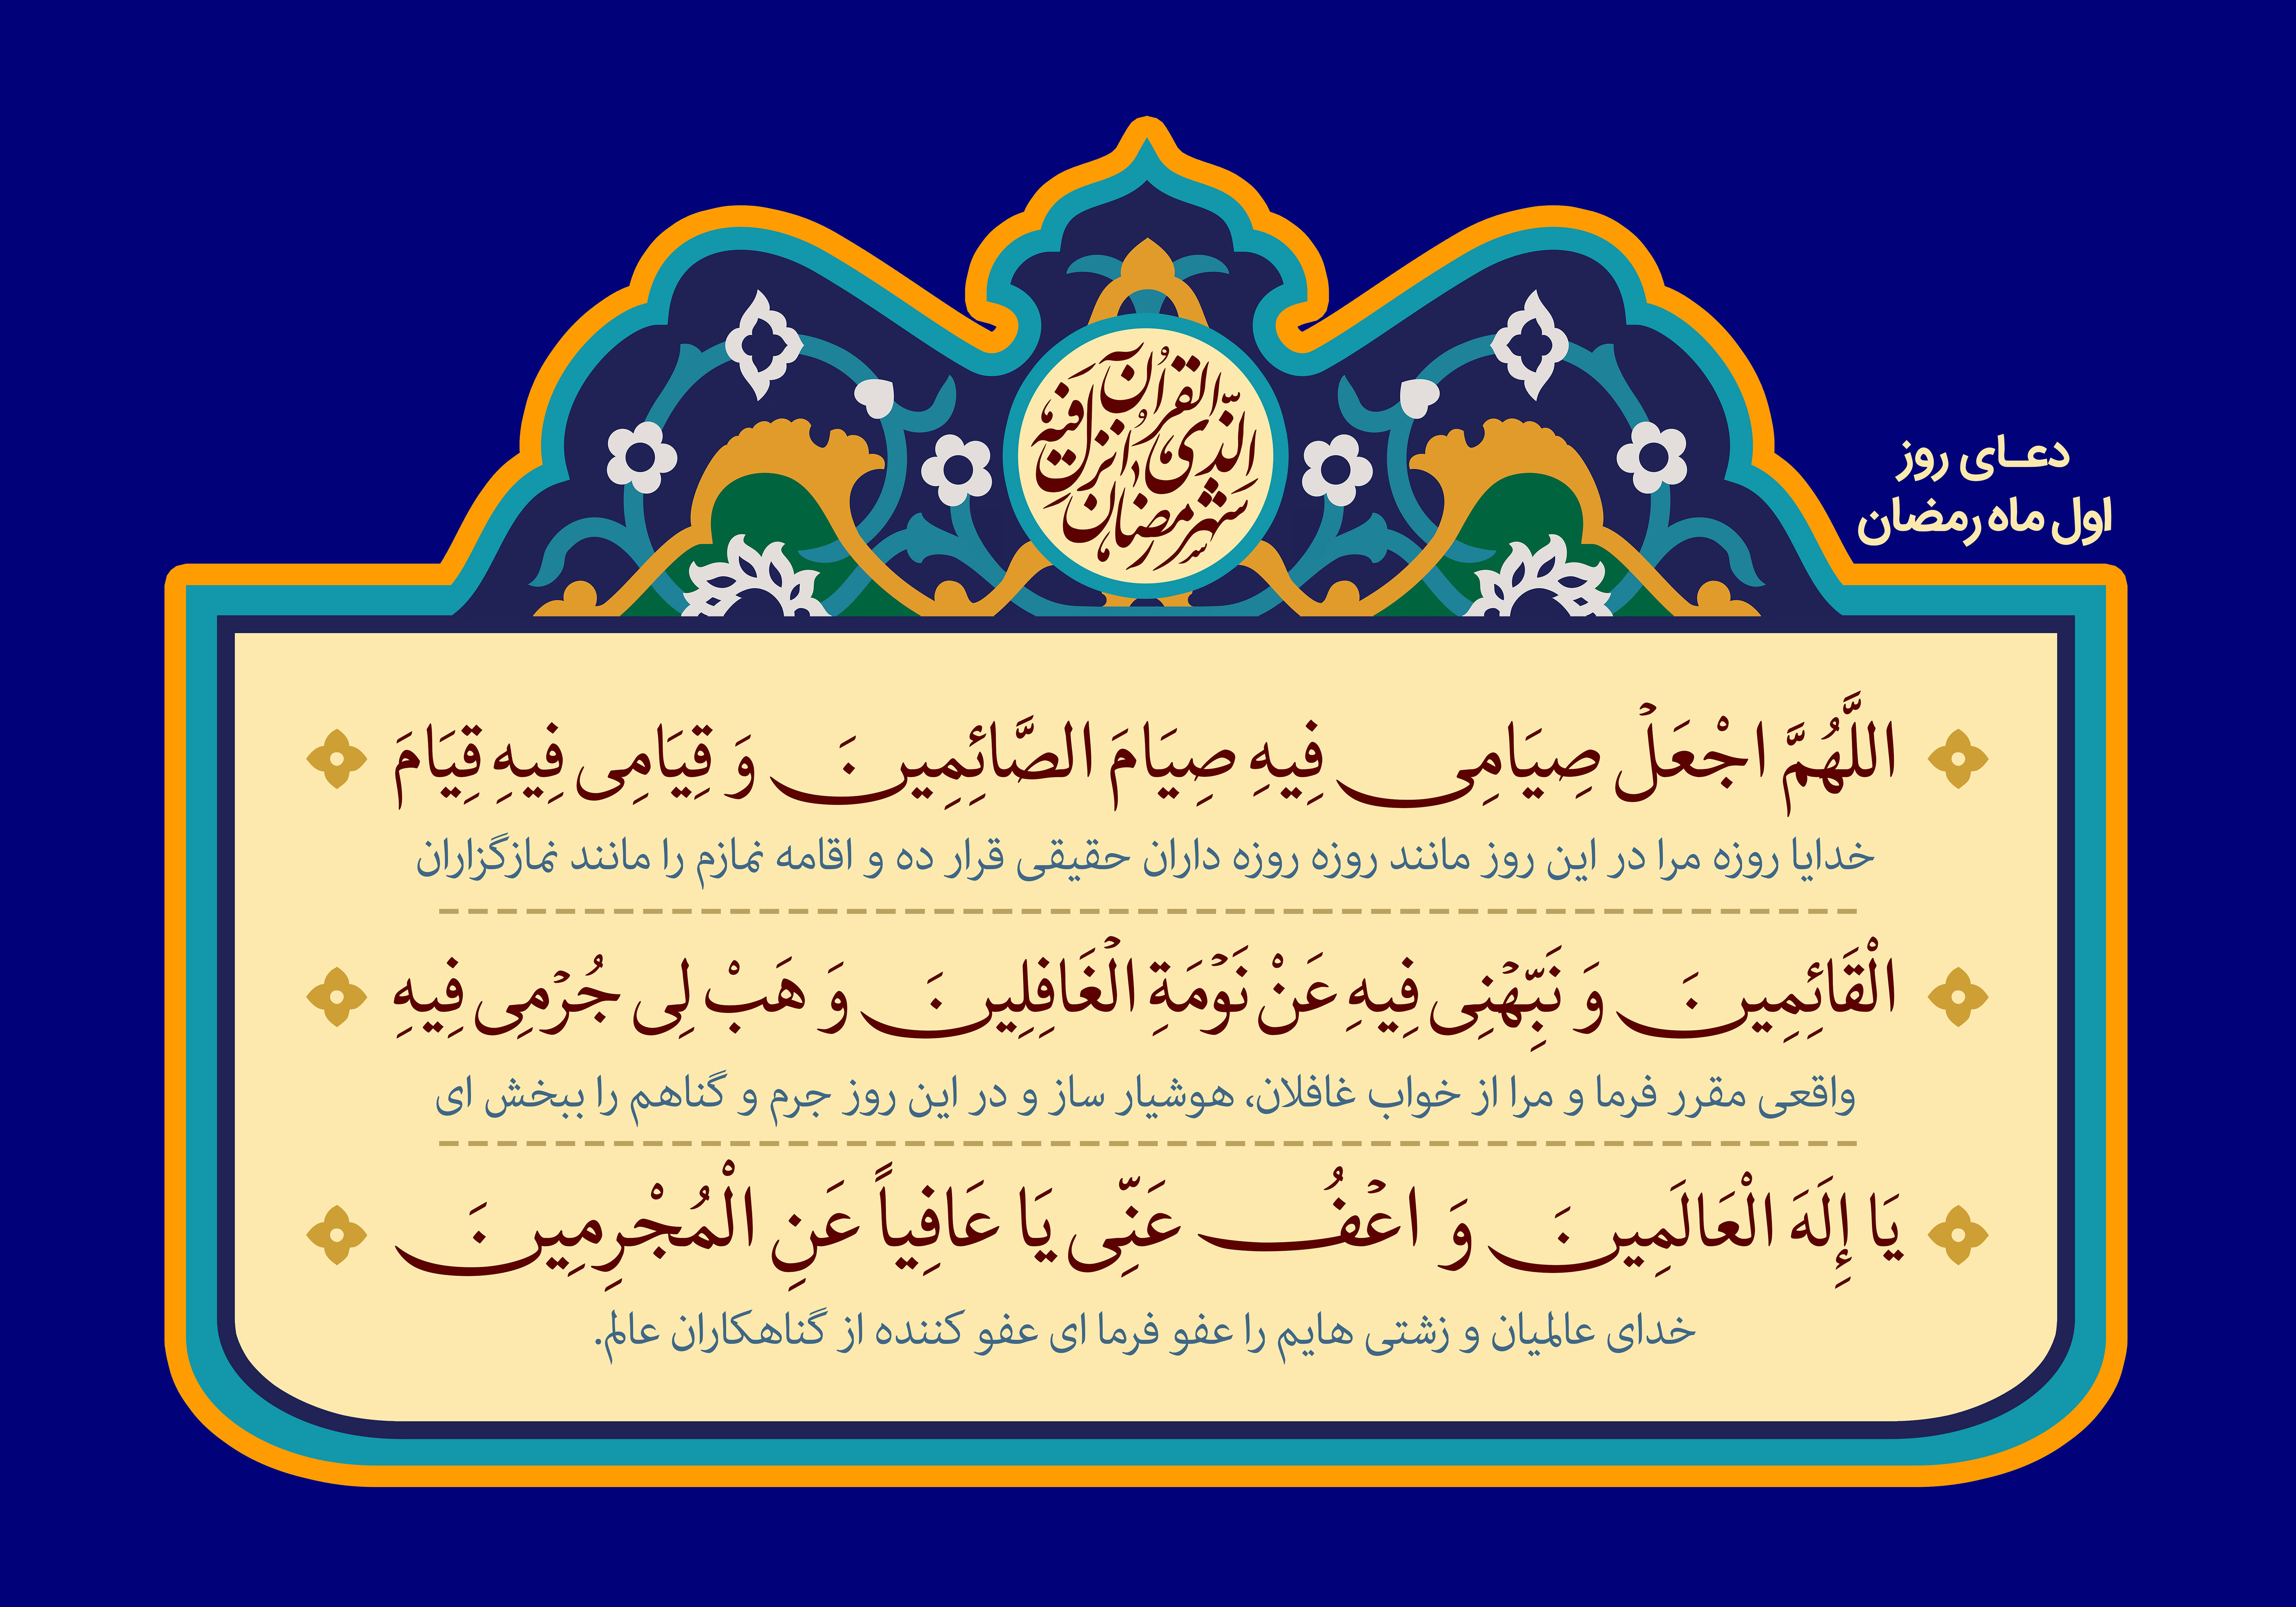 دعای روز
اول ماه رمضان
شهر رمضان الذی انزل فیه القرآن
اللَّهُمَّ اجْعَلْ صِيَامِی فِيهِ صِيَامَ الصَّائِمِينَ وَ قِيَامِی فِيهِ قِيَامَ
خدایا روزه مرا در این روز مانند روزه روزه داران حقیقی قرار ده و اقامه نمازم را مانند نمازگزاران
الْقَائِمِينَ وَ نَبِّهْنِی فِيهِ عَنْ نَوْمَةِ الْغَافِلِينَ وَ هَبْ لِی جُرْمِی فِيهِ
واقعی مقرر فرما و مرا از خواب غافلان، هوشیار ساز و در این روز جرم و گناهم را ببخش ای
يَا إِلَهَ الْعَالَمِينَ وَ اعْفُ عَنِّی يَا عَافِياً عَنِ الْمُجْرِمِينَ
خدای عالمیان و زشتی هایم را عفو فرما ای عفو کننده از گناهکاران عالم.